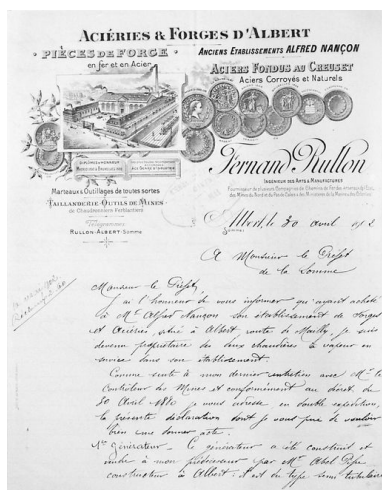 ACIÉRIES & FORGES D'ALBERT
PIÈCES DE FORGE
en fer et en Acier
ANCIENS ETABLISSEMENTS ALFRED NANÇON
ACIERS FONDUS AU CREUSET
Aciers Corroyés et Naturels
Fernand Rullon
INGÉNIEUR DES ARTS & MANUFACTURES
Marteaux & Outillages de toutes sortes
TAILLANDERIE-OUTILS DE MINES
de Chaudronniers Ferblantiers
Télégrammes
RULLON-ALBERT-Somme
Albert, le 30 avril
SOMME
A Monsieur le Préfet
de la Somme
Monsieur le Préfet,
J'ai l'honneur de vous informer qu'ayant acheté
à Mr Alfred Nançon son établissement de Forges
et Aciéries, situé à Albert, route de Mailly, je suis
devenu propriétaire des deux chaudières à vapeur en
service dans son établissement.
Comme suite à mon dernier entretien avec Mr le
Contrôleur des Mines et conformément au décret du
30 Avril 1880 je vous adresse, en double expédition,
la présente déclaration dont je vous prie de vouloir
bien me donner acte.
1er Générateur. Ce générateur a été construit et
vendu à mon prédécesseur par Mr Abel Pifre
constructeur à Albert. Il est du type semi tubulaire